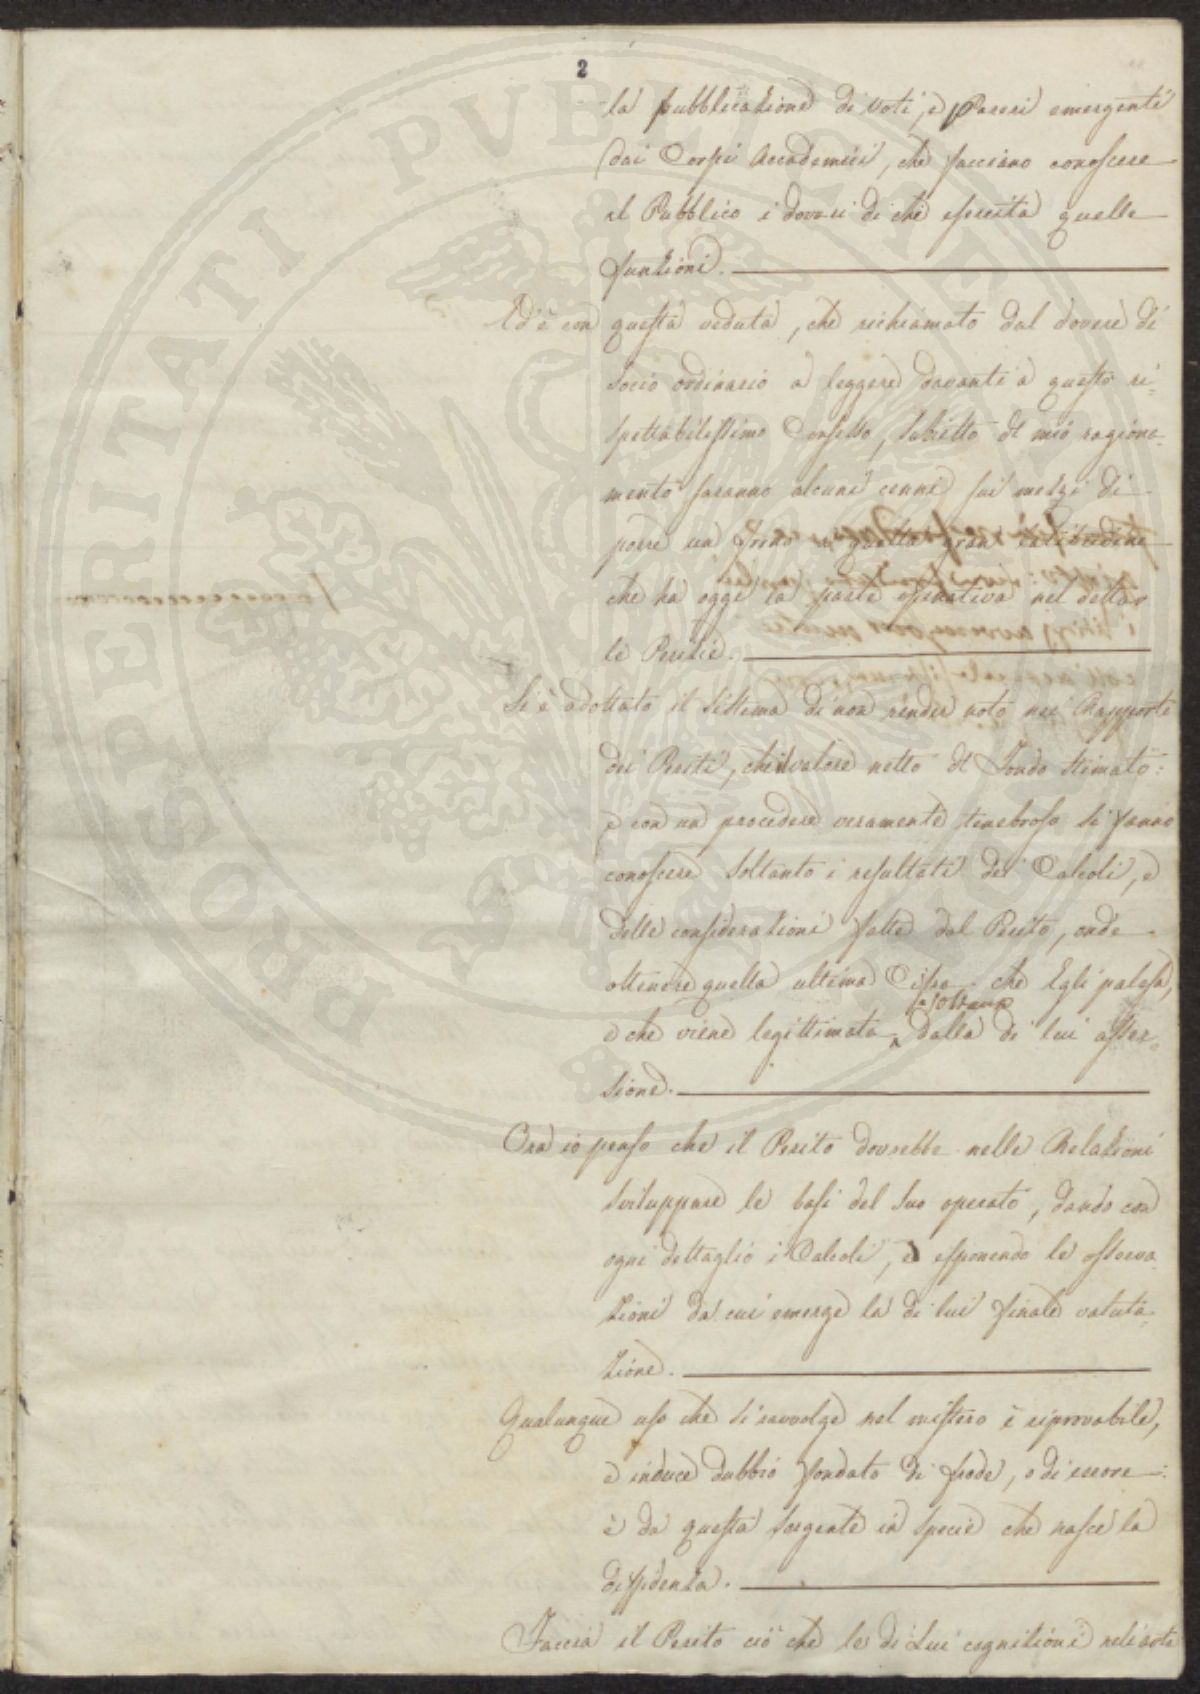 2
la pubblicazione di voti, e Pareri emergenti
dai Corpi Accademici, che facciano conoscere
al Pubblico i doveri di chi esercita quelle
funzioni.
Ed è con questa veduta, che richiamato dal dovere di
socio ordinario a leggere davanti a questo ri-
spettabilissimo Consesso, subietto del mio ragiona-
mento saranno alcuni cenni sui mezzi di
porre un freno a quella gran latitudine
che ha oggi la parte operativa nel dettar
le Perizie.
Si è adottato il sistema di non render noto nei Rapporti
dei Periti, che il valore netto del Fondo stimato:
e con un procedere veramente tenebroso si fanno
conoscere soltanto i resultati dei Calcoli, e
delle considerazioni fatte dal Perito, onde
ottenere quella ultima Cifra che Egli palesa,
soltanto
e che viene legittimata dalla di lui asser-
sione.
Ora io penso che il Perito dovrebbe nelle Relazioni
sviluppare le basi del suo operato, dando con
ogni dettaglio i Calcoli, e esponendo le osserva-
zioni da cui emerge la di lui finale valuta-
zione.
Qualunque uso che si ravvolge nel mistero è riprovabile,
e induce dubbio fondato di frode, o di errore:
è da questa sorgente in specie che nasce la
diffidenza.
Faccia il Perito ciò che le di Lui cognizioni
PROSPERITATI PVBLICAE